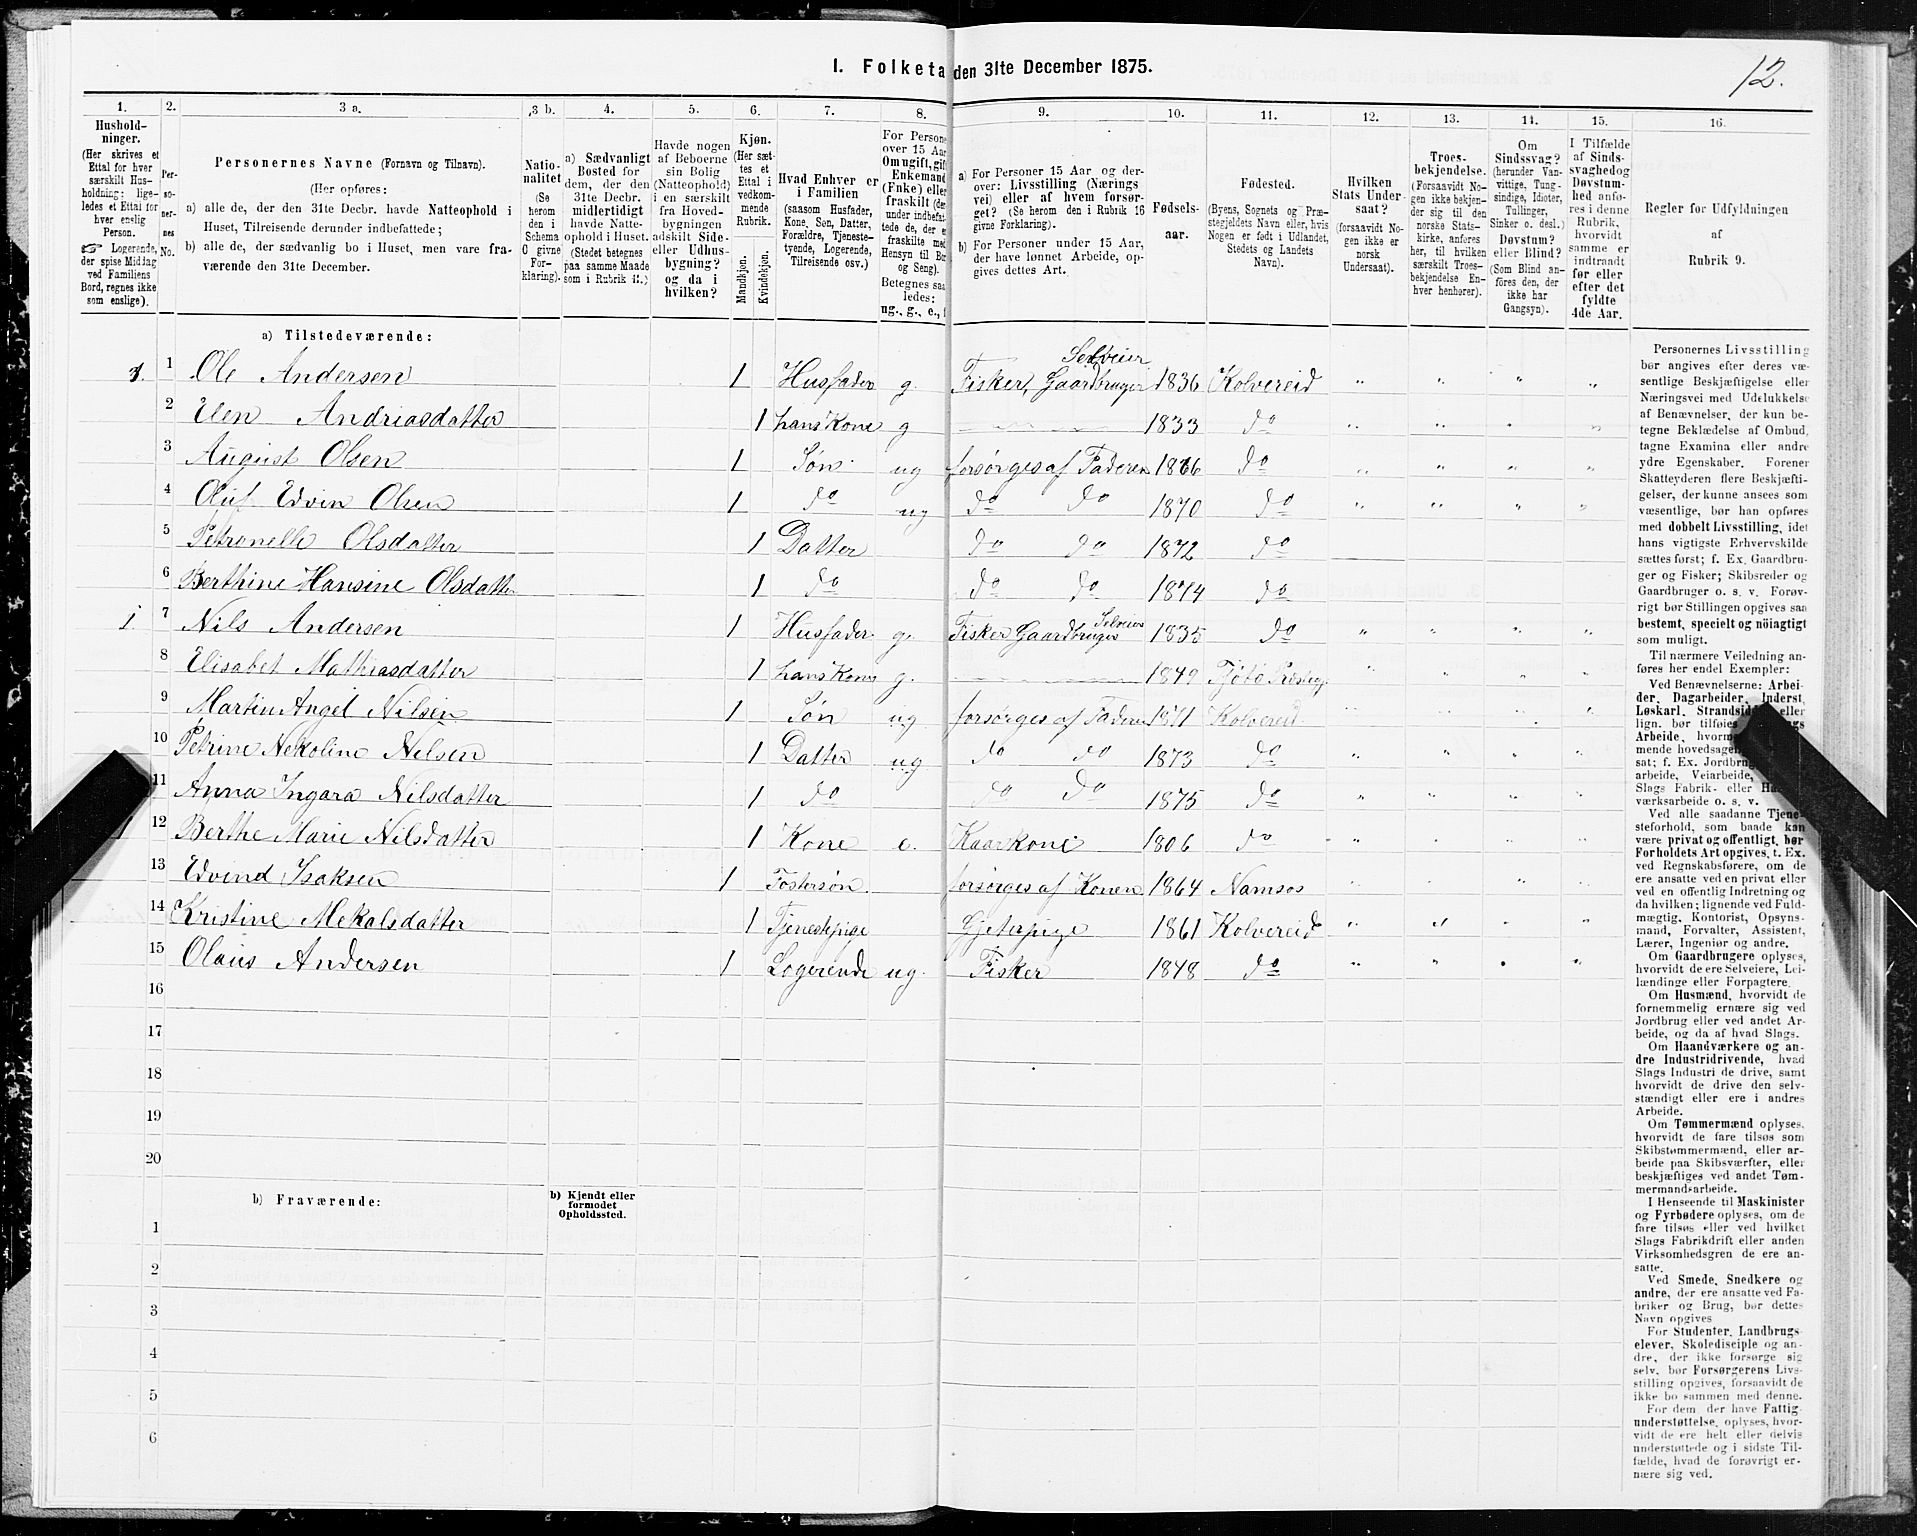 I. Folketa den 31te December 1875.
12.
1. 2. 3 a. 3 b. 4. 5. 6. 7. 8. 9. 10. 11. 12. 13. 14. 15. 16.
Hushold-
ninger.
(Her skrives et
Ettal for hver
særskilt Hus-
holdning; lige-
ledes et Ettal for
hver enslig
Person.
☞ Logerende,
der spise Middag
ved Familiens
Bord, regnes ikke
som enslige).
Per-
so-
ner-
nes
No.
Personernes Navne (Fornavn og Tilnavn).
(Her opføres:
a) alle de, der den 31te Decbr. havde Natteophold i
Huset, Tilreisende derunder indbefattede;
b) alle de, der sædvanlig bo i Huset, men vare fra-
værende den 31te December.
Natio-
nalitet
(Se
herom
den i
Schema
O givne
For-
klaring).
a) Sædvanligt
Bosted for
dem, der den
31te Decbr.
midlertidigt
havde Natte-
ophold i Huset.
(Stedet betegnes
paa samme Maade
som i Rubrik 11.)
Havde nogen
af Beboerne
sin Bolig
(Natteophold)
i en særskilt
fra Hoved-
bygningen
adskilt Side-
eller Udhus-
bygning?
og da i
hvilken?
Kjøn.
(Her sæt-
tes et
Ettal i
vedkom-
mende
Rubrik.
Mandkjøn.
Kvindekjøn.
Hvad Enhver er
i Familien
(saasom Husfader,
Kone, Søn, Datter,
Forældre, Tjeneste-
tyende, Logerende,
Tilreisende osv.)
For Persone
over 15 Aar
Om ugift, gift
Enkemand
(Enke) elle
fraskilt (de
under indbefat-
tede de, der e
fraskilte med
Hensyn til Bo
og Seng).
Betegnes saa
ledes:
ug., g., e., f
a) For Personer 15 Aar og der-
over: Livsstilling (Nærings
vei) eller af hvem forsør-
get? (Se herom den i Rubrik 16
givne Forklaring).
b) For Personer under 15 Aar,
der have lønnet Arbeide, op-
gives dettes Art.
Fødsels-
aar.
Fødested.
(Byens, Sognets og Præ-
stegjeldets Navn eller, hvis
Nogen er født i Udlandet,
Stedets og Landets
Navn).
Hvilken
Stats Under-
saat?
(forsaavidt No-
gen ikke er
norsk
Undersaat).
Troes-
bekjendelse.
(Forsaavidt No-
gen ikke bekjen-
der sig til den
norske Stats-
kirke, anføres
her, til hvilken
særskilt Troes-
bekjendelse En-
hver henhører).
Om
Sindssvag?
(herunder Van-
vittige, Tung-
sindige, Idioter,
Tullinger,
Sinker o. desl.)
Døvstum?
eller Blind?
(Som Blind an-
føres den, der
ikke har
Gangsyn).
I Tilfælde
af Sinds-
svaghed og
Døvstum-
hed anfø-
res i denne
Rubrik,
hvorvidt
samme er
indtraadt
før eller
efter det
fyldte
4de Aar.
Regler for Udfyldningen
af
Rubrik 9.
a) Tilstedeværende:
1. 1 Ole Andersen 1 Husfader g. Fisker, Gaardbruger Selveier 1836 Kolvereid " " " "
2 Elen Andriasdatter 1 hans Kone g 1833 do " " " "
3 August Olsen 1 Søn ug forsørges af Faderen 1866 do " " " "
4 Oluf Edvin Olsen 1 do ug do do 1870 do " " " "
5 Petronelle Olsdatter 1 Datter do do 1872 do
6 Berthine Hansine Olsdatter 1 do do do 1874 do
1. 7 Nils Andersen 1 Husfader g. Fisker Gaardbruger Selveier 1835 do " " " "
8 Elisabet Mathiasdatter 1 hans Kone g. 1849 Tjøtø Præstegj " " " "
9 Martin Angel Nilsen 1 Søn ug forsørges af Faderen 1871 Kolvereid " " " "
10 Petrine Nekoline Nelsen 1 Datter ug do do 1873 do " " " "
11 Anna Ingara Nilsdatter 1 do do do 1875 do " " " "
1 12 Berthe Marie Nilsdatter 1 Kone e. Kaarkone 1806 do " " " "
13 Edvind Isaksen 1 Fostersøn forsørges af Konen 1864 Namsos " " " "
14 Kristine Mekalsdatter 1 Tjenestepige Gjeterpige 1861 Kolvereid " " " "
15 Olaus Andersen 1 Logerende ug. Fisker 1848 do " " " "
16
17
18
19
20
b) Fraværende:
b) Kjendt eller
formodet
Opholdssted.
1
2
3
4
5
6
Personernes Livsstilling
bør angives efter deres væ-
sentlige Beskjæftigelse eller
Næringsvei med Udelukkelse
af Benævnelser, der kun be-
tegne Beklædelse af Ombud,
tagne Examina eller andre
ydre Egenskaber. Forener
Skatteyderen flere Beskjæfti-
gelser, der kunne ansees som
væsentlige, bør han opføres
med dobbelt Livsstilling, idet
hans vigtigste Erhvervskilde
sættes først; f. Ex. Gaardbru-
ger og Fisker; Skibsreder og
Gaardbruger o. s. v. Forøv-
rigt bør Stillingen opgives saa
bestemt, specielt og nöiagtigt
som muligt.
Til nærmere Veiledning an-
føres her endel Exempler:
Ved Benævnelserne: Arbei-
der, Dagarbeider, Inderst,
Løskarl, Strandsid eller
lign. bør tilføies
Arbeide, hvorm
mende hovedsagel
sat; f. Ex. Jordbrug
arbeide, Veiarbeide,
Slags Fabrik- eller Ha
værksarbeide o. s. v.
Ved alle saadanne Tjene-
steforhold, som baade kan
være privat og offentligt, bør
Forholdets Art opgives, t. Ex.
ved Regnskabsførere, om de
ere ansatte ved en privat eller
ved en offentlig Indretning og
da hvilken; lignende ved Fuld-
mægtig, Kontorist, Opsyns-
mand, Forvalter, Assistent,
Lærer, Ingeniør og andre.
Om Gaardbrugere oplyses,
hvorvidt de ere Selveiere, Lei-
lændinge eller Forpagtere.
Om Husmænd, hvorvidt de
fornemmelig ernære sig ved
Jordbrug eller ved andet Ar-
beide, og da af hvad Slags.
Om Haandværkere og an-
dre Industridrivende, hvad
Slags Industri de drive, samt
hvorvidt de drive den selv-
stændigt eller ere i andres
Arbeide.
Om Tømmermænd oplyses,
hvorvidt de fare tilsøs som
Skibstømmermænd, eller ar-
beide paa Skibsværfter, eller
beskjæftiges ved andet Tøm-
mermandsarbeide.
I Henseende til Maskinister
og Fyrbødere oplyses, om de
fare tilsøs eller ved hvilket
Slags Fabrikdrift eller anden
Virksomhedsgren de ere an-
satte.
Ved Smede, Snedkere og
andre, der ere ansatte ved Fa-
briker og Brug, bør dettes
Navn opgives
For Studenter, Landbrugs-
elever, Skoledisciple og an-
dre, der ikke forsørge sig
selv, bør Forsørgerens Livs-
stilling opgives, forsaavidt de
ikke bo sammen med denne.
For dem, der have Fattig-
understøttelse, oplyses, hvor-
vidt de ere helt eller delvis
understøttede og i sidste Til-
fælde, hvad de forøvrigt er-
nære sig ved.